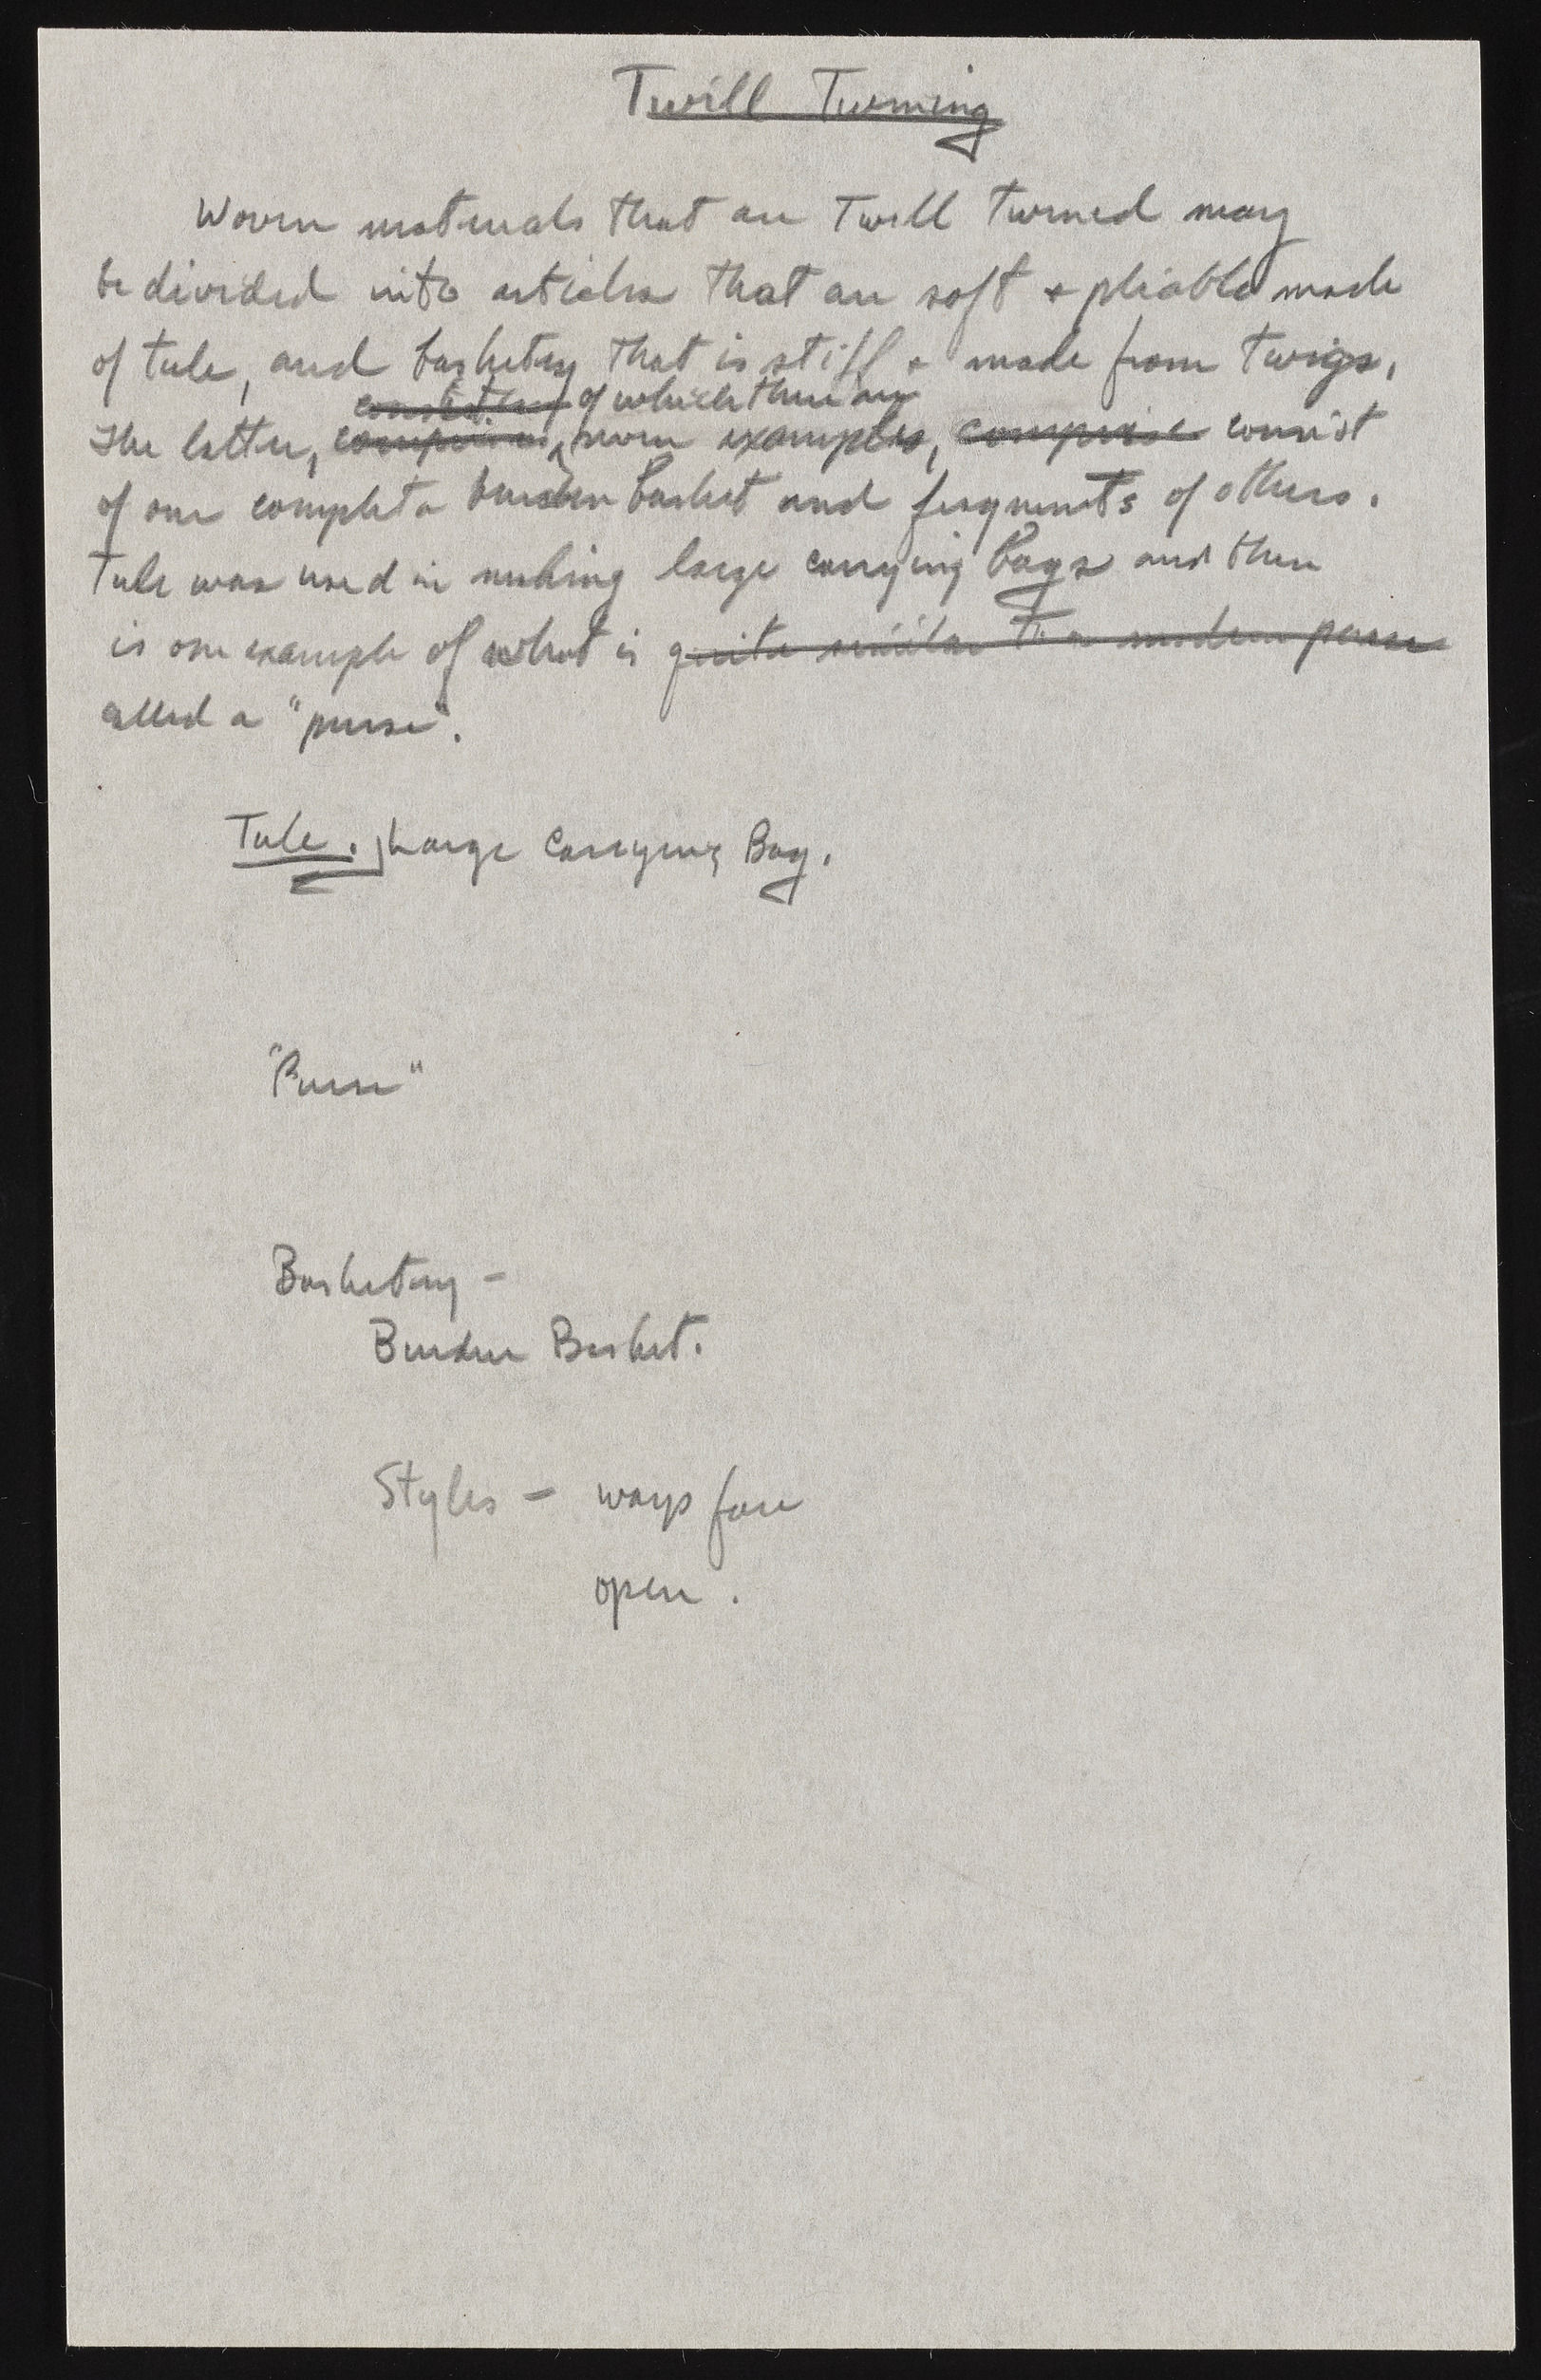 Twill Twining
Woven materials that are Twill Twined may
be divided into articles that are soft + pliable made
of tule, and basketry that is stiff + made from twigs.
of which there are
The latter, seven examples, comprise consist
of one complete burden basket and fragments of others.
Tule was used in making large carrying bags and there
is one example of what is quite similar to a modern purse
called a "purse".
Tule. Large Carrying Bag.
"Purse"
Basketry -
Burden Basket.
Styles - warp face
open.